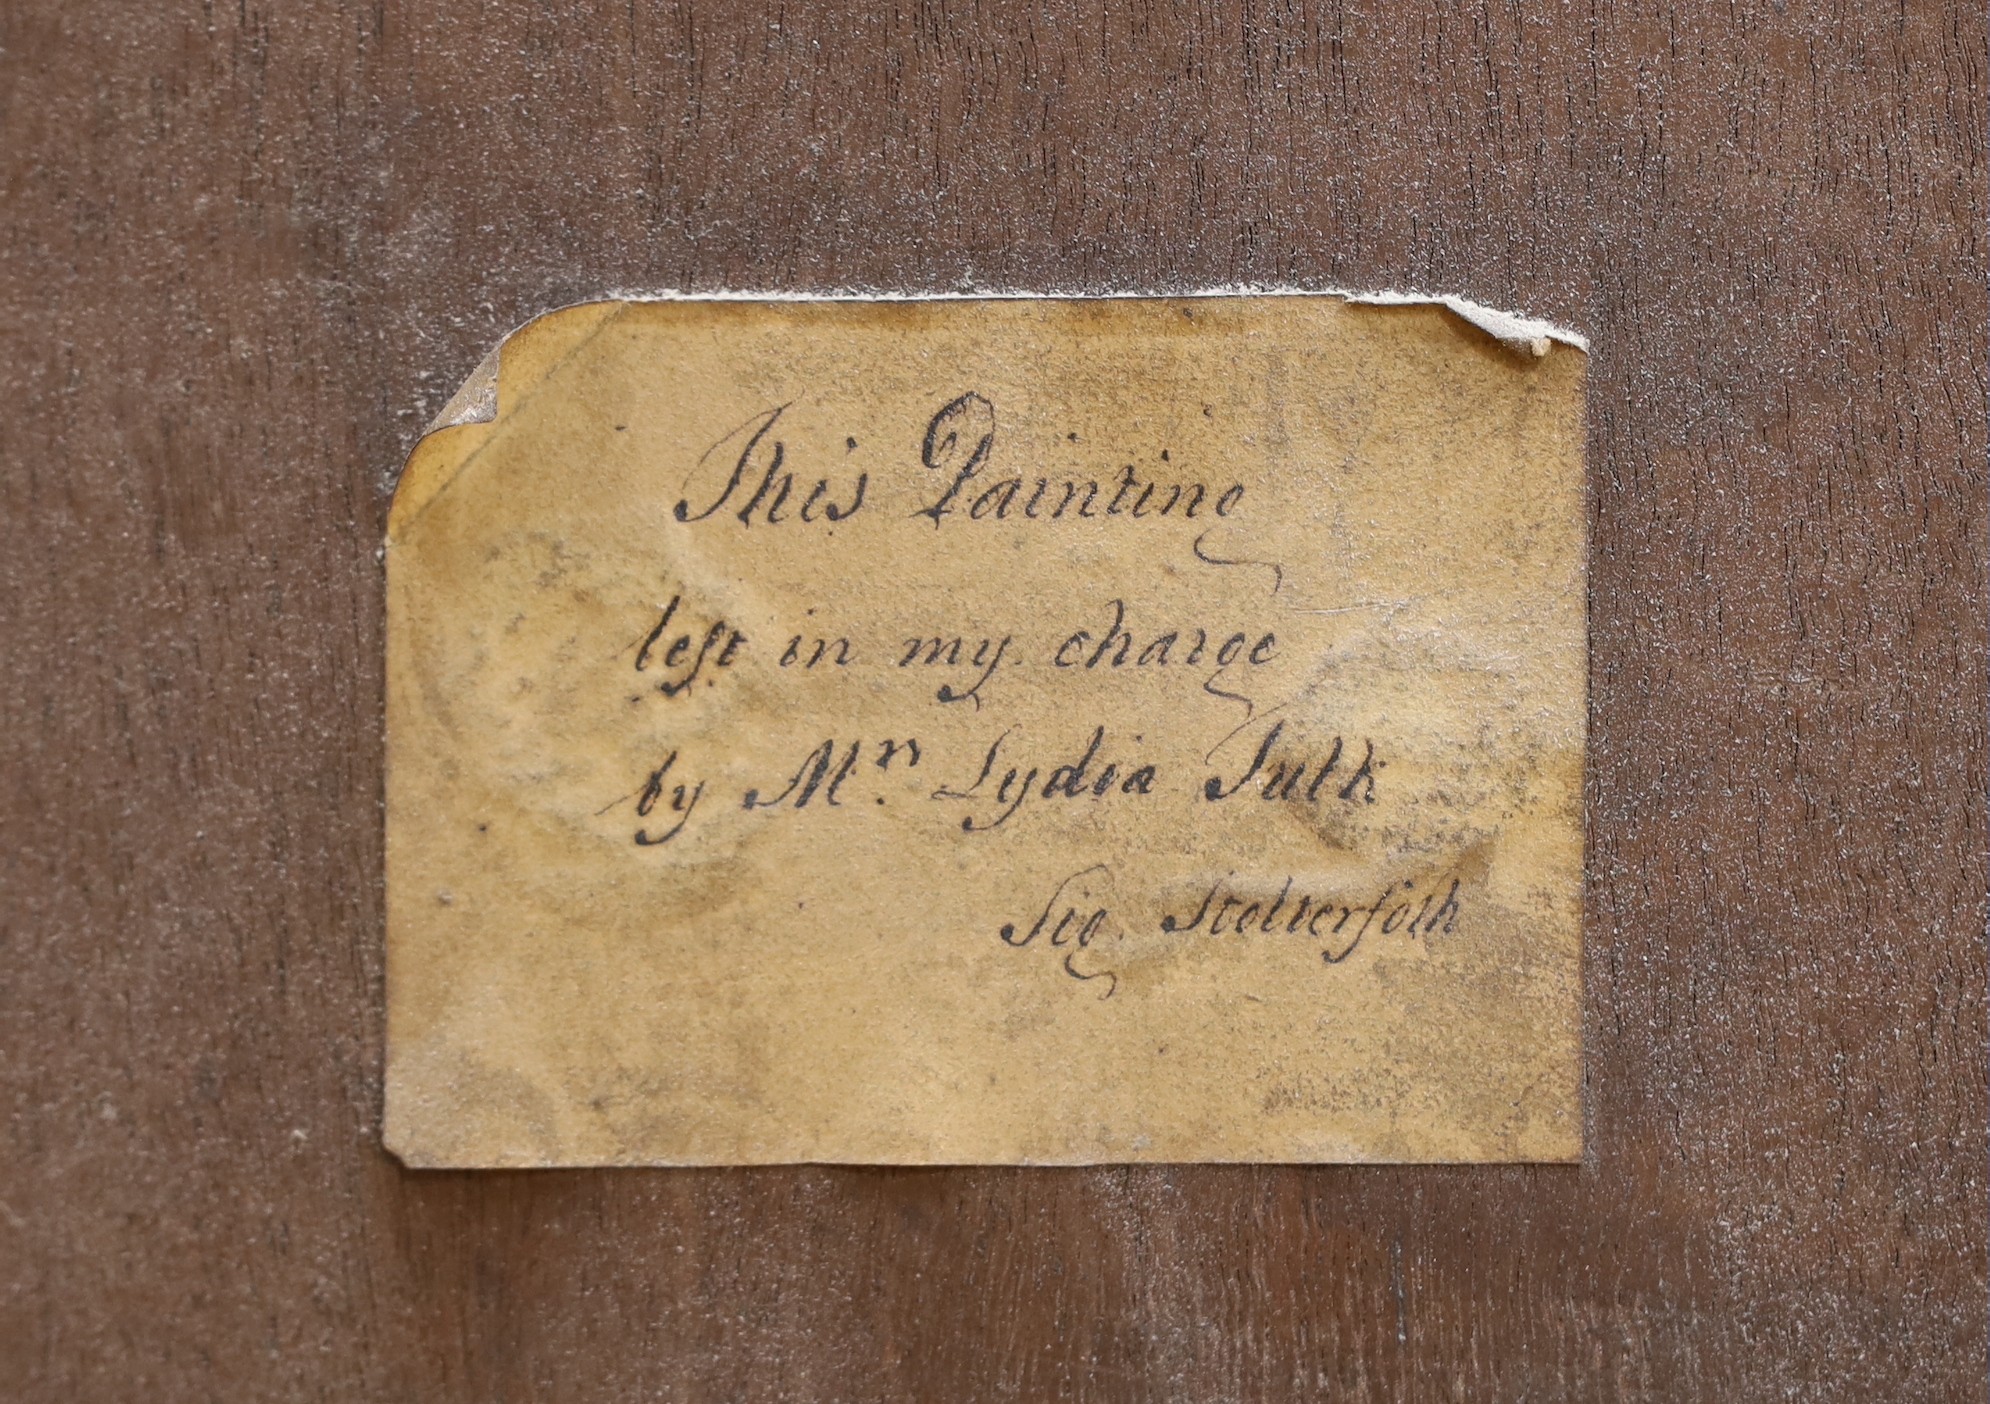 This Painting
left in my charge
by Mrs. Lydia Tulk
Sig. Stolterfoth